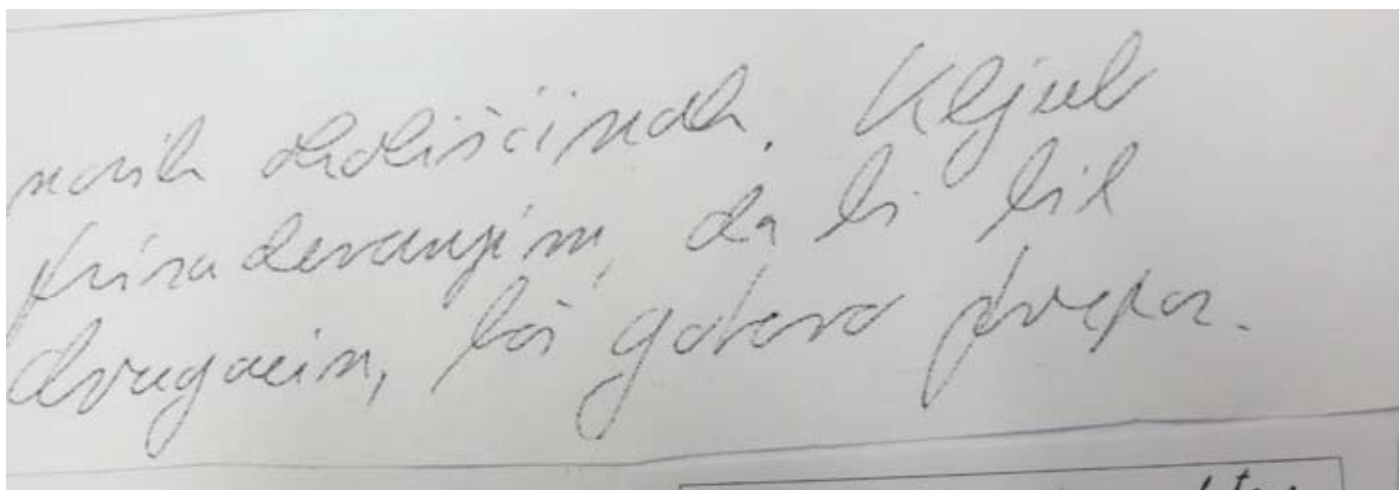 naših okoliščinah. Kljub
prizadevanjim, da bi bil
drugačen, boš gotovo